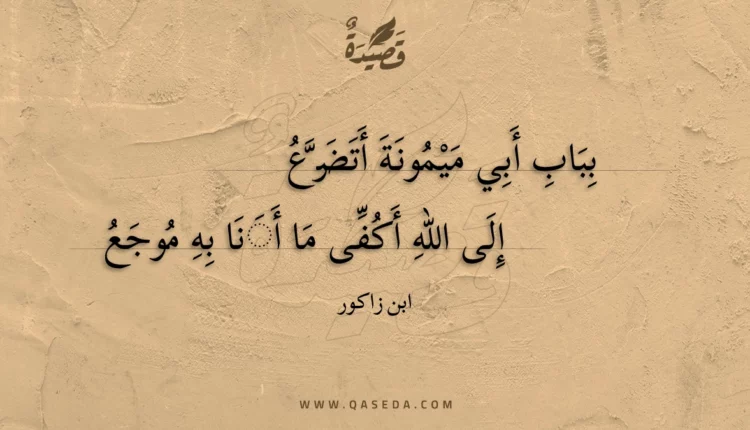 قَصِيدَةٌ
بِبَابِ أَبِي مَيْمُونَةَ أَتَضَرَّعُ
إِلَى اللهِ أَكُفِّى مَا أَ◌َنَا بِهِ مُوجَعُ
ابن زاكور
WWW.QASEDA.COM